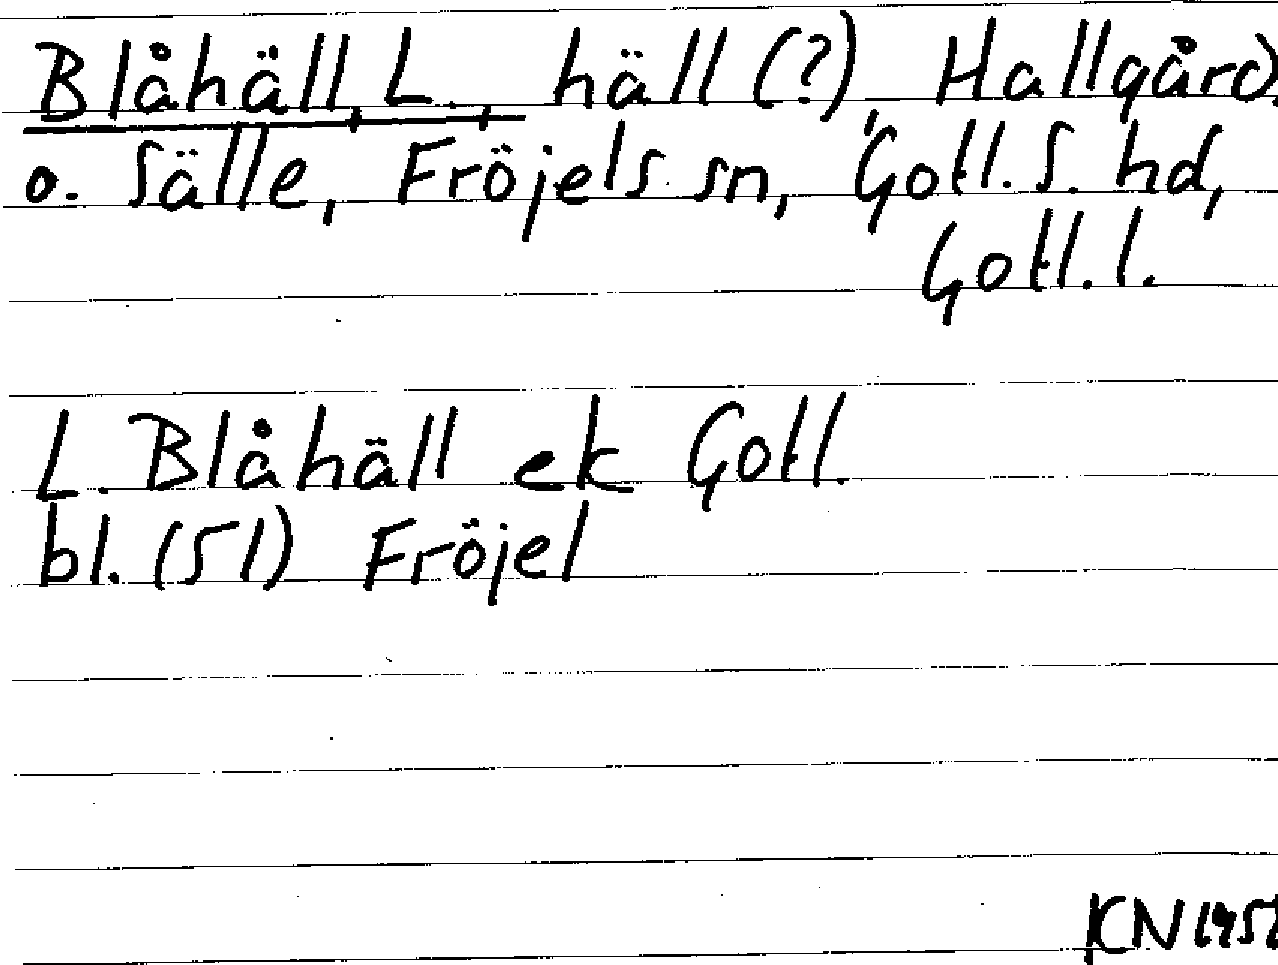 Blåhäll, L., häll (?), Hallgård
o. Sälle, Fröjels sn, Gotl. S. hd,
Gotl. l.
L. Blåhäll ek Gotl.
bl. (51) Fröjel
KN 1951